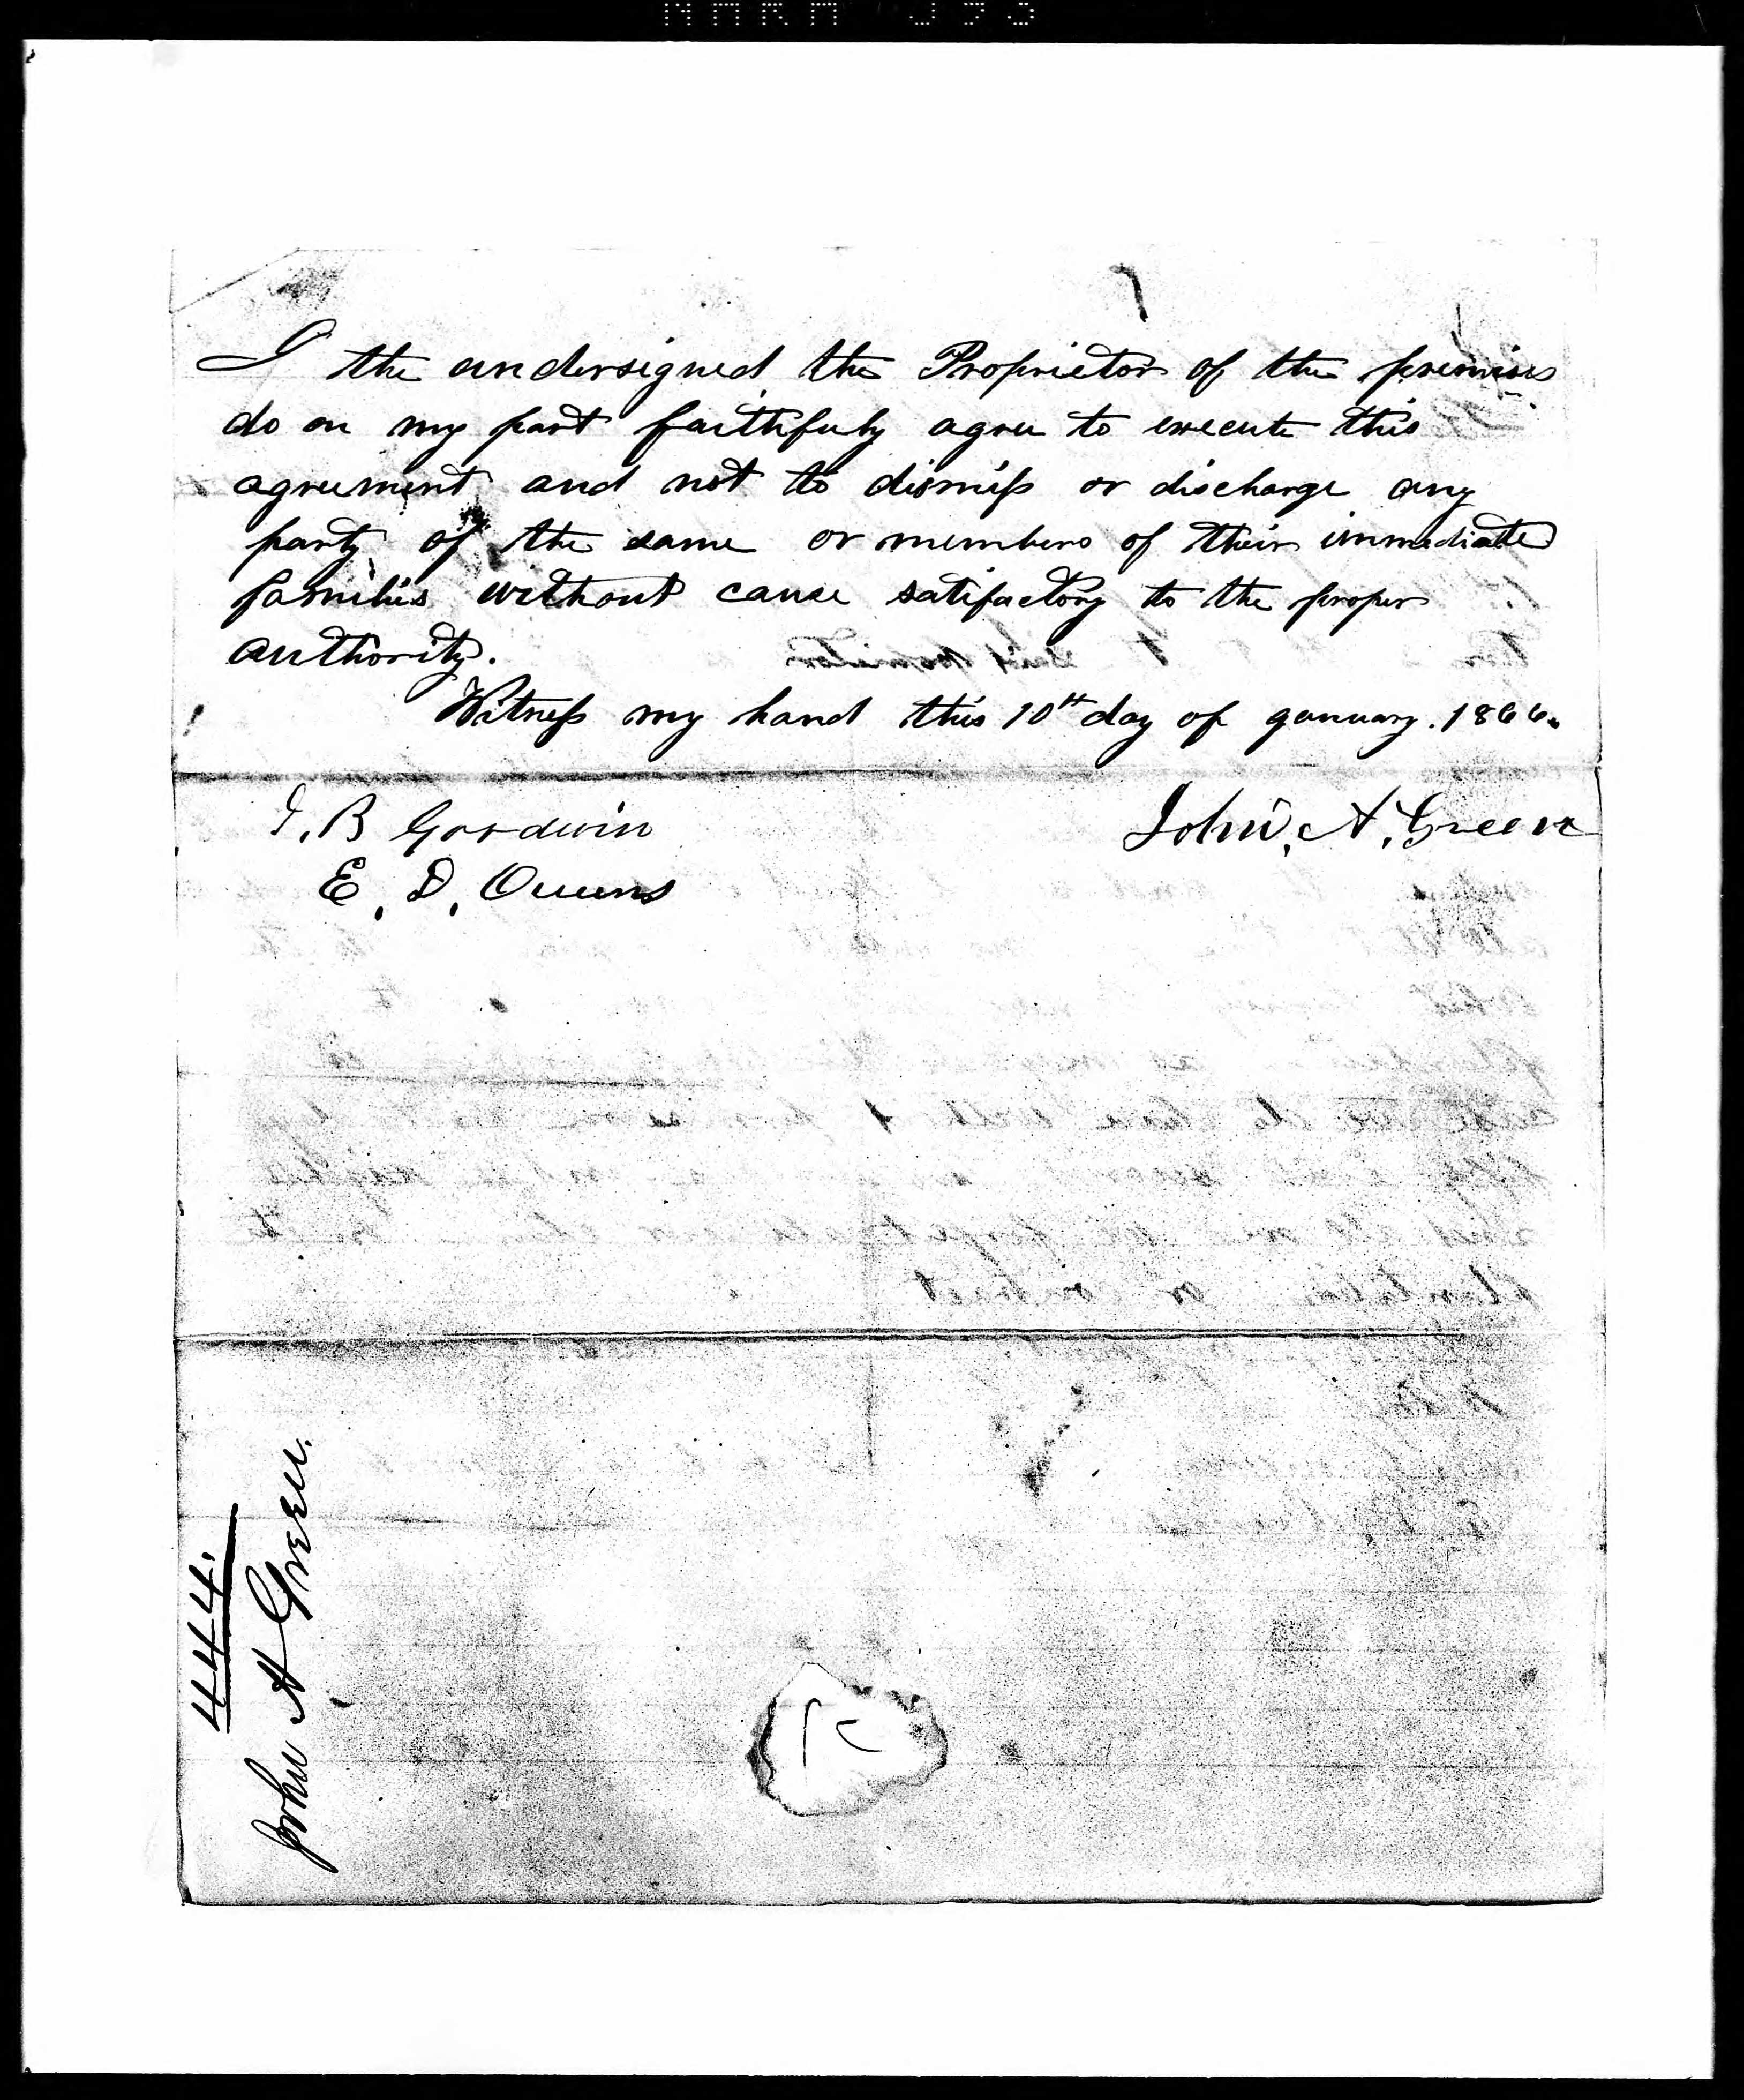 I the undersigned the Proprietor of the premises
do on my part faithfuly agree to execute this
agreement and not to dismiss or discharge any
party of the same or members of their immediate
families without cause satifactory to the proper
authority.
Witness my hand this 10th day of january. 1866.
John. A. Green
J. B Goodwin
E. D. Owens
444.
John A Green.